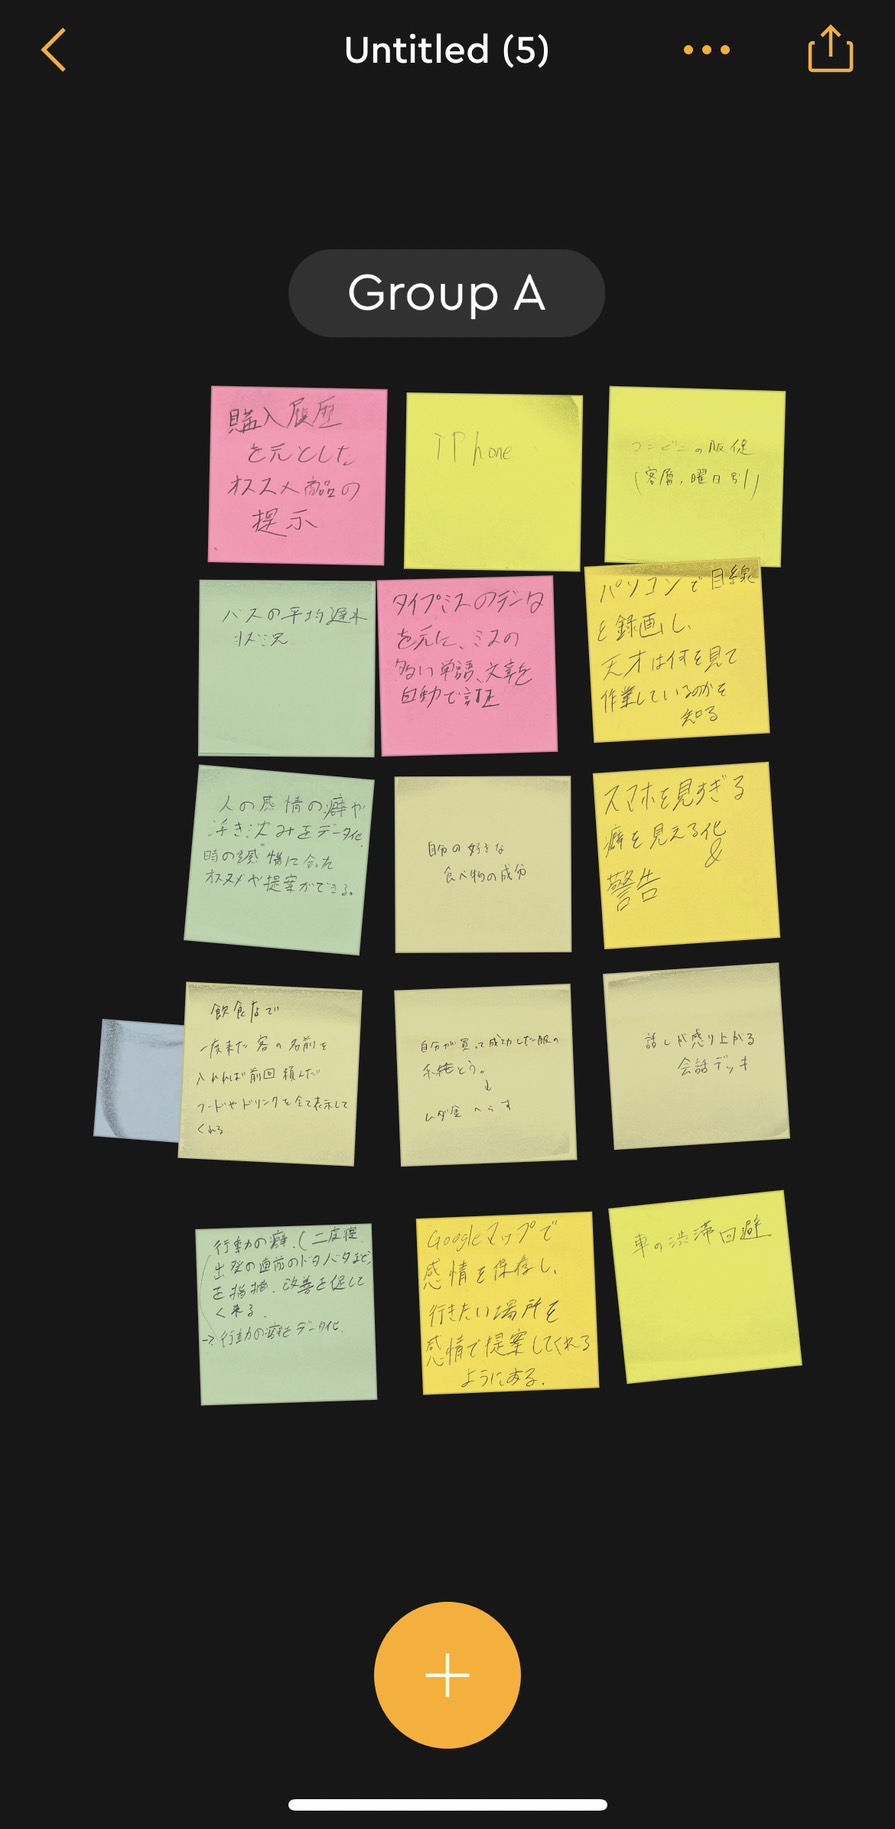 Untitled (5)
Group A
購入履歴
を元とした
オススメ商品の
提示
iPhone
コンビニの販促
(客層,曜日別)
バスの平均遅れ
状況
タイプミスのデータ
を元に、ミスの
多い単語、文章を
自動で訂正
パソコンで目線
を録画し、
天才は何を見て
作業しているのかを
知る
人の感情の癖や
浮き沈みをデータ化
時の感情に合った
オススメや提案ができる。
自分の好きな
食べ物の成分
スマホを見すぎる
癖を見える化
&
警告
飲食店で
一度来た客の名前を
入れれば前回頼んだ
フードやドリンクを全て表示して
くれる
自分が買って成功した服の
系統とう。
↓
ムダ金へらす
話しが盛り上がる
会話デッキ
行動の癖、(二度寝
出発の直前のドタバタなど)
を指摘、改善を促して
くれる
→行動の癖をデータ化
Googleマップで
感情を保存し、
行きたい場所を
感情で提案してくれる
ようにする。
車の渋滞回避